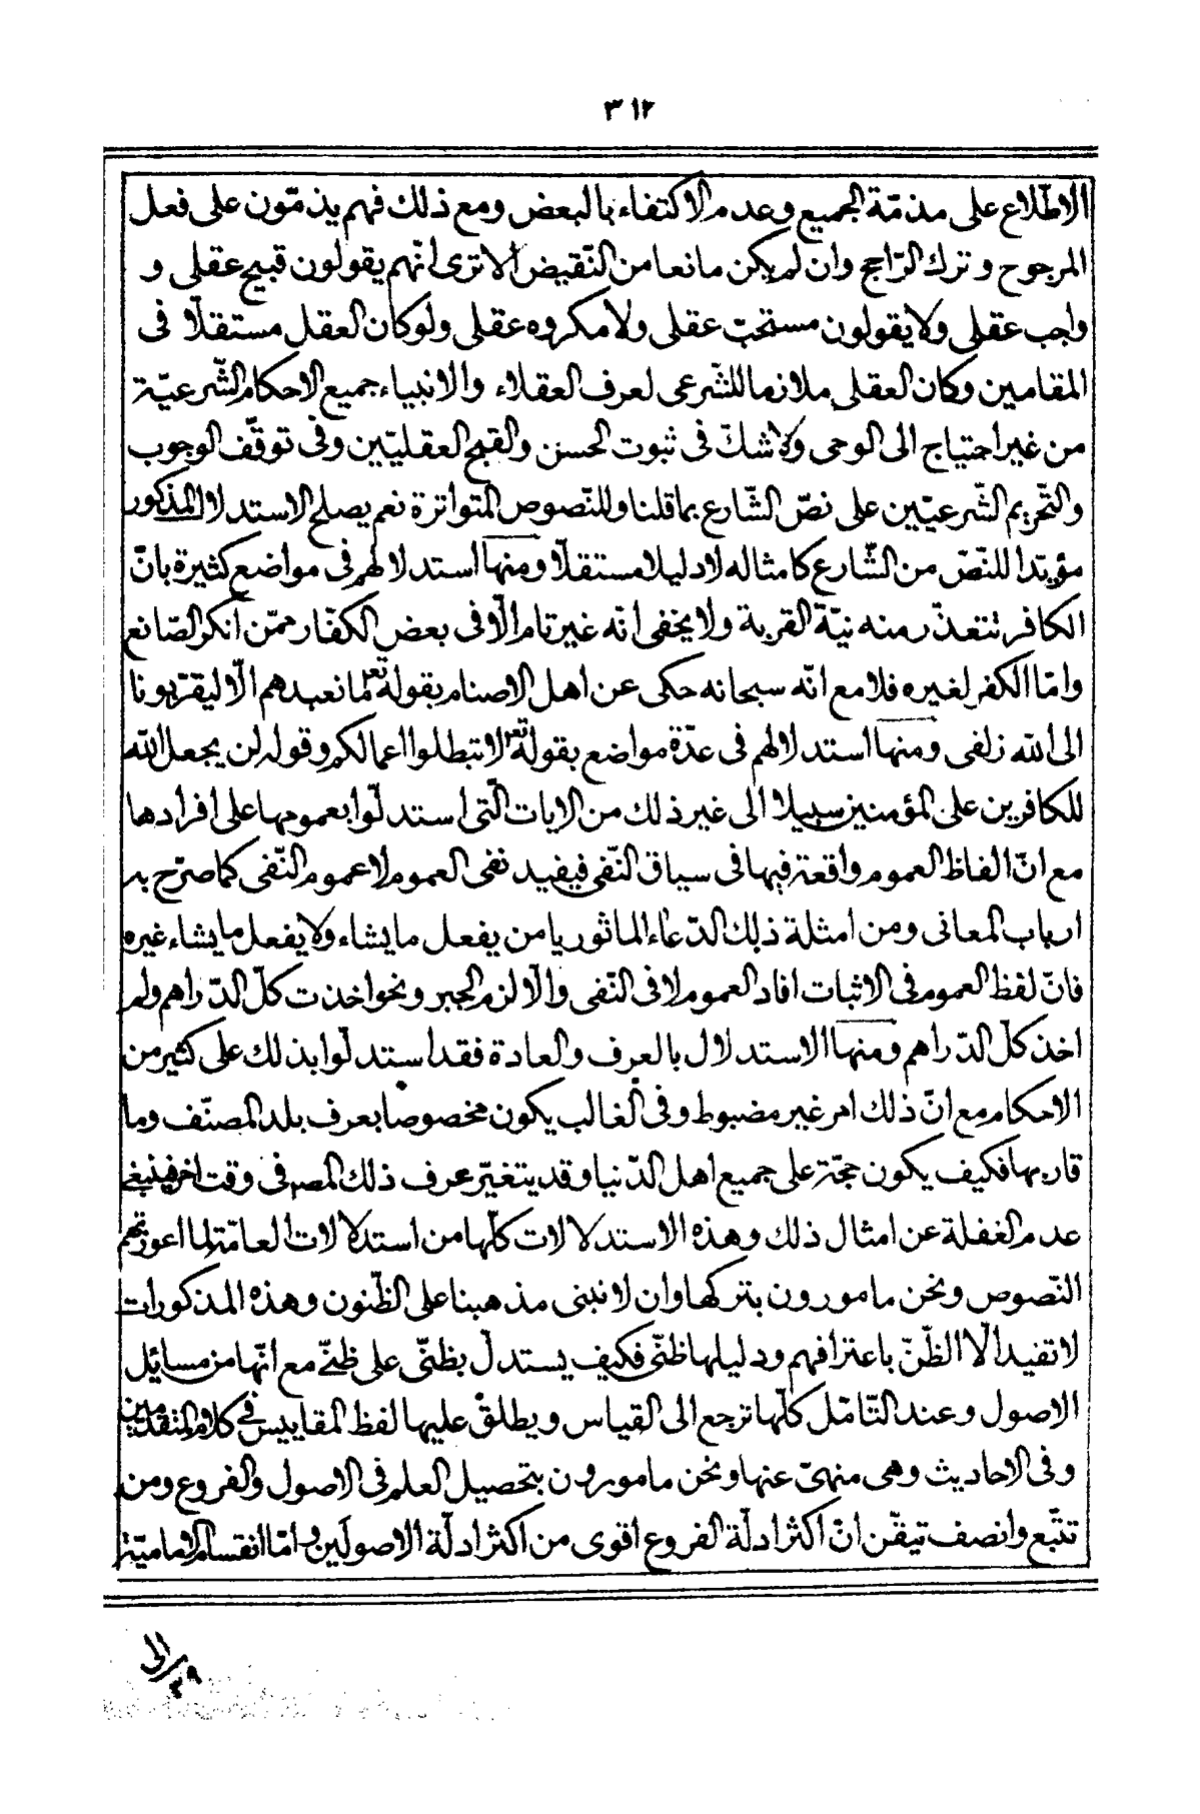 ٣١٢
الاطّلاع على مذمّة الجميع وعدم الاكتفاء بالبعض ومع ذلك فهم يذمّون على فعل
المرجوح وترك الرّاجح وان لم يكن مانعا من النّقيض الا ترى انّهم يقولون قبيح عقلى و
واجب عقلى ولا يقولون مستحبّ عقلى ولا مكروه عقلى ولو كان العقل مستقلّا فى
المقامين وكان العقلى ملازما للشّرعى لعرف العقلاء والانبياء جميع الاحكام الشّرعيّة
من غير احتياج الى الوحى ولا شكّ فى ثبوت الحسن والقبح العقليّين وفى توقّف الوجوب
والتّحريم الشّرعيّين على نصّ الشّارع بما قلنا وللنّصوص المتواترة نعم يصلح الاستدلال المذكور
مؤيّدا للنّصّ من الشّارع كامثاله لا دليلا مستقلّا ومنها استدلالهم فى مواضع كثيرة بانّ
الكافر تتعذّر منه نيّة القربة ولا يخفى انّه غير تام الّا فى بعض الكفّار ممّن انكر الصّانع
وامّا الكفر لغيره فلا مع انّه سبحانه حكى عن اهل الاصنام بقوله تع‍ ما نعبدهم الّا ليقرّبونا
الى الله زلفى ومنها استدلالهم فى عدّة مواضع بقوله تع‍ لا تبطلوا اعمالكم وقوله لن يجعل الله
للكافرين على المؤمنين سبيلا الى غير ذلك من الايات الّتى استدلّوا بعمومها على افرادها
مع انّ الفاظ العموم واقعة فيها فى سياق النّفى فيفيد نفى العموم لا عموم النّفى كما صرّح به
ارباب المعانى ومن امثلة ذلك الدّعاء الماثور يا من يفعل ما يشاء ولا يفعل ما يشاء غيره
فانّ لفظ العموم فى الاثبات افاد العموم لا فى النّفى والّا لزم الجبر ونحو اخذت كلّ الدّراهم ولم
اخذ كلّ الدّراهم ومنها الاستدلال بالعرف والعادة فقد استدلّوا بذلك على كثير من
الاحكام مع انّ ذلك امر غير مضبوط وفى الغالب يكون مخصوصا بعرف بلد المصنّف وما
قاربها فكيف يكون حجّة على جميع اهل الدّنيا وقد يتغيّر عرف ذلك المصر فى وقت اخر فينبغى
عدم الغفلة عن امثال ذلك وهذه الاستدلالات كلّها من استدلالات العامّة لما اعوزتهم
النّصوص ونحن مامورون بتركها وان لا نبنى مذهبنا على الظّنون وهذه المذكورات
لا تفيد الّا الظّنّ باعترافهم ودليلها ظنّى فكيف يستدلّ بظنّى على ظنّى مع انّها من مسائل
الاصول وعند التّامّل كلّها ترجع الى القياس ويطلق عليها لفظ المقاييس فى كلام المتقدّمين
وفى الاحاديث وهى منهىّ عنها ونحن مامورون بتحصيل العلم فى الاصول والفروع ومن
تتبّع وانصف تيقّن انّ اكثر ادلّة الفروع اقوى من اكثر ادلّة الاصوليّين وامّا انقسام الاماميّة
الى